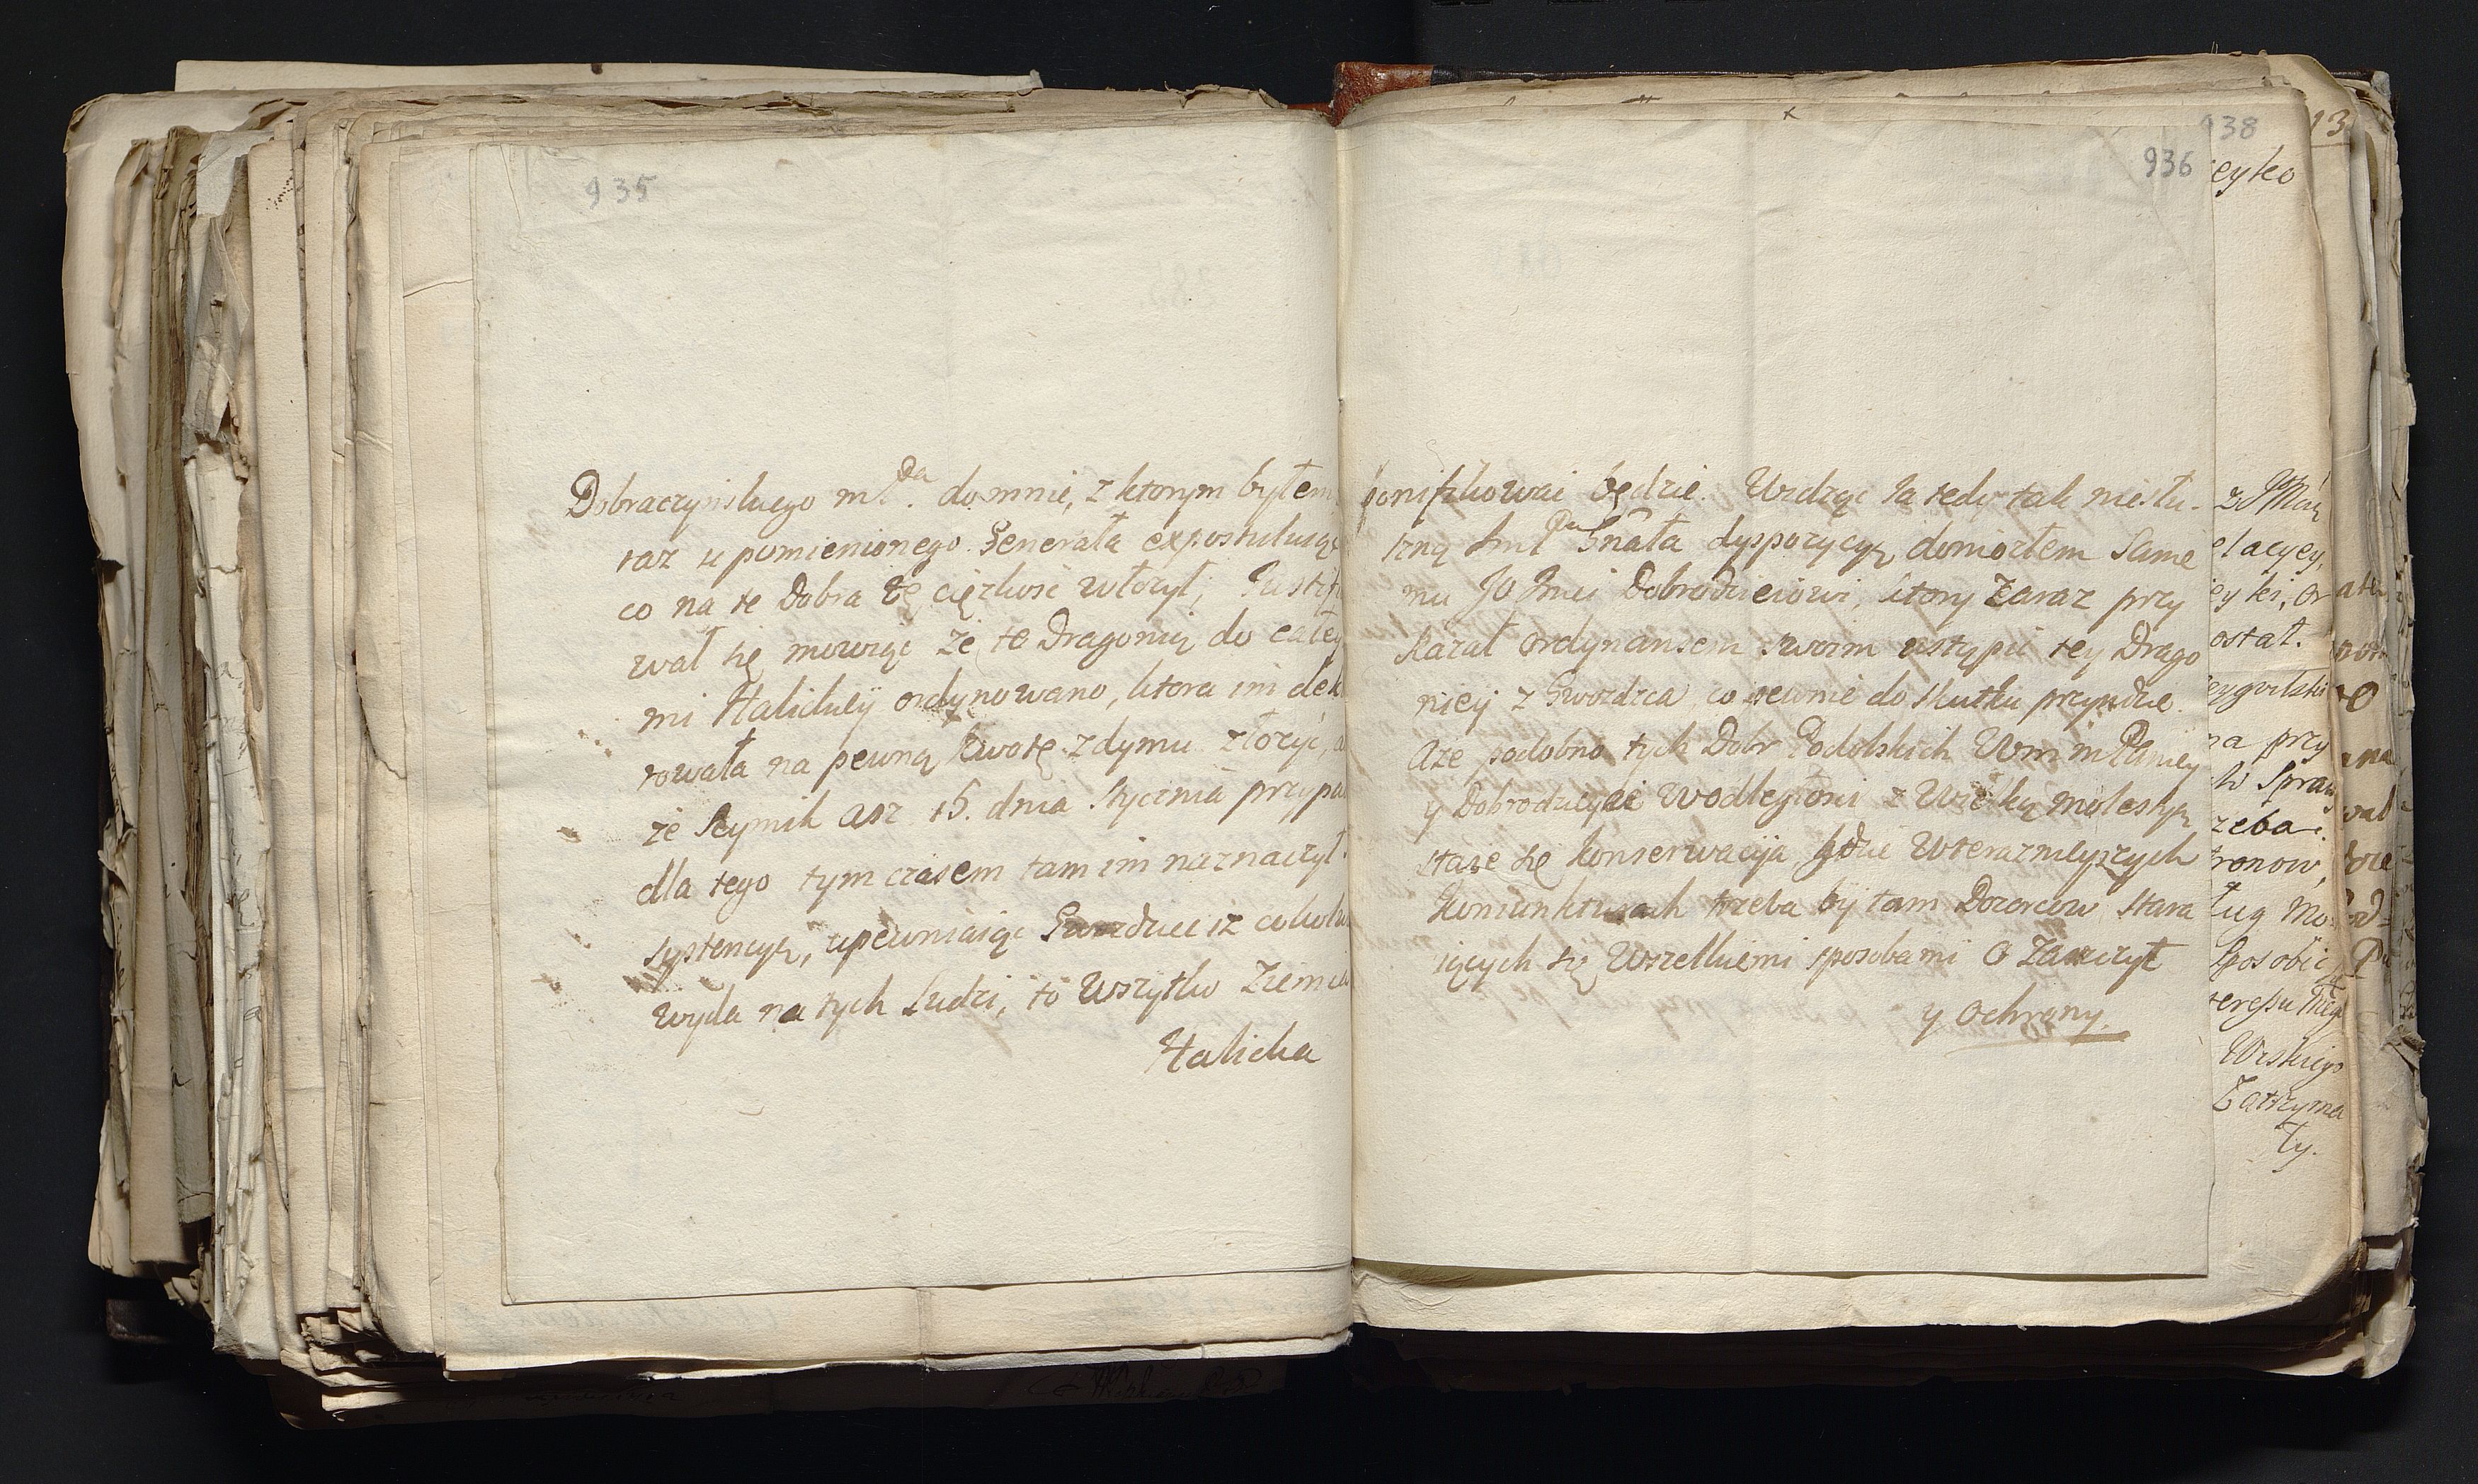 935
Dobraczynskiego mł Pa. do mnie, z ktorym byłem
raz u pomienionego Generała expostuluiąc
co na te Dobra tę cięzkosc włozył; Justifi
wał się mowiąc że te Dragonią do całey
mi Halickiey ordynowano, ktora im dek
rowała na pewną kwotę z dymu złozyć, a
że Seymik asz 15. dnia Stycznia przypa
dla tego tym czasem tam im naznaczył
systencyą, upewniaiąc Gwozdziec iz cokolw
wyda na tych ludzi, to wszytko Ziemia
Halicka
936
bonifikowac będzie. Widząc Ja tedy tak niesłu-
szną Jmł Pa Gnała dyspozycyą, doniosłem Same
mu JO Jmci Dobrodzieiowi, ktory Zaraz przy
kazał ordynansem swoim ustąpic tey Drago
niey z Gwozdzca, co pewnie do skutku przyidzie.
Aże podobno tych Dobr Podolskich Wm m Paniey
y Dobrodzieyce w odległosci z Wielką molestyą
staie się konserwacyja, gdzie w teraznieyszych
koniunkturach trzeba by tam Dozorcow stara
iących się Wszelkiemi sposobami o Zaszczyt
y Ochrony.
938
13
eyko
elacyey,
ostał.
na przy
zeba
ronow,
ług Mo
Sposobic
Zatrzyma
ły.